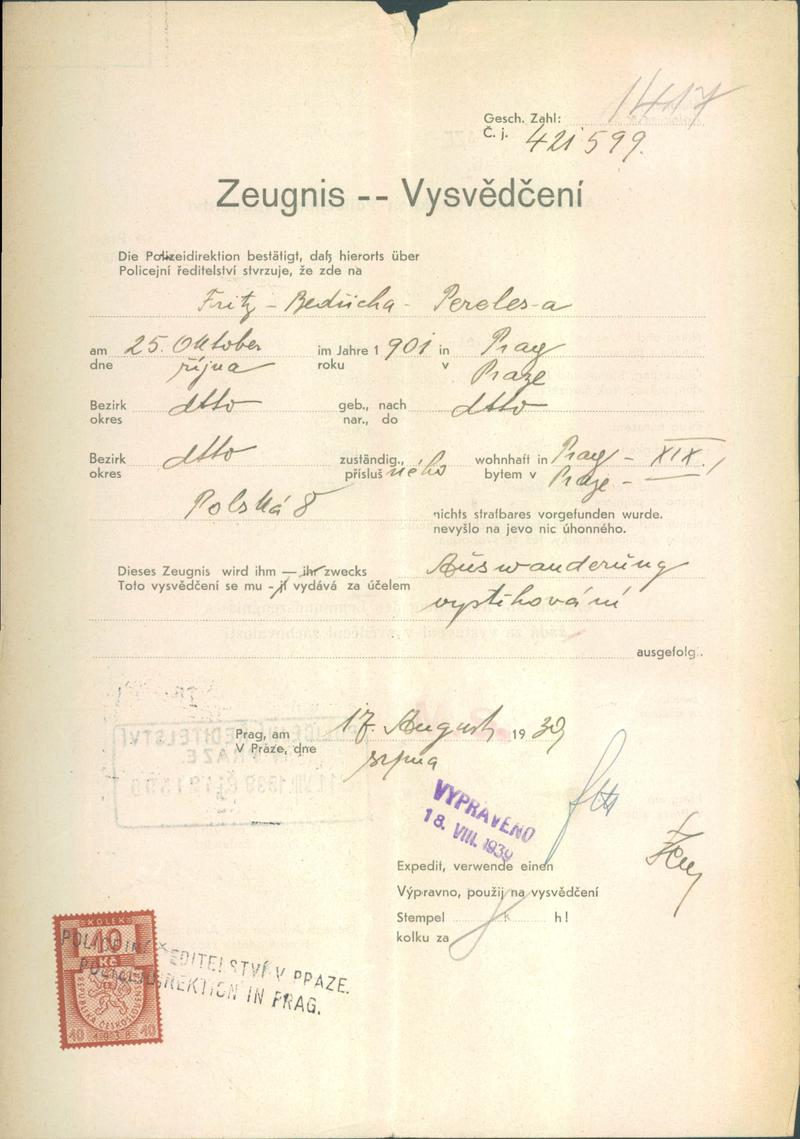 1417
Gesch. Zahl:
Č. j. 421599.
Zeugnis -- Vysvědčení
Die Polizeidirektion bestätigt, daß hierorts über
Policejní ředitelství stvrzuje, že zde na
Fritz - Bedřicha - Pereles-a
am 25. Oktober im Jahre 1 901 in Prag
dne října roku v Praze
Bezirk dtto geb., nach dtto
okres nar., do
Bezirk dtto zuständig., wohnhaft in Prag - XIX.,
okres přísluš ného bytem v Praze -
Polská 8 nichts strafbares vorgefunden wurde.
nevyšlo na jevo nic úhonného.
Dieses Zeugnis wird ihm — ihr zwecks Auswanderung
Toto vysvědčení se mu - jí vydává za účelem vystěhování
ausgefolg..
Prag, am 17. August 19 39
V Praze, dne srpna
POLICEJNÍ ŘEDITELSTVÍ
V PRAZE.
VYPRAVENO
18. VIII. 1939
Expedit, verwende einen
Výpravno, použij na vysvědčení
Stempel K h!
kolku za
KOLEK
10
Kč
REPUBLIKA ČESKOSLOVENSKÁ
10 1938 10
POLICEJNÍ ŘEDITELSTVÍ V PRAZE.
POLIZEIDIREKTION IN PRAG.